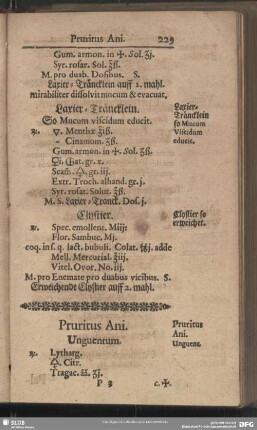 Pruritus Ani. 229
Gum. armon. in 🜊. Sol. ʒj.
Syr. rosar. Sol. ℥ß.
M. pro duab. Dosibus. S.
Laxier-Träncklein auff 2. mahl.
mirabiliter dissolvit mucum & evacuat,
Laxier-Träncklein.
So Mucum viscidum educit.
Laxier-
Träncklein
so Mucum
Viscidum
educit.
℞. 🜄. Menthæ ℥iß.
- Cinamom. ℥ß.
Gum. armon. in 🜊. Sol. ʒß.
gr. x.
gr. iij.
Extr. Troch. alhand. gr. j.
Syr. rosat. Solut. ℥ß.
M. S. Laxier-Tranck. Dos. j.
Clystier.
Clystier so
erweichet.
℞. Spec. emollent. Miij:
Flor. Sambuc. Mj.
coq. in s. q. lact. bubuli. Colat. adde
Mell. Mercurial. ℥iij.
Vitel. Ovor. No. iij.
M. pro Enemate pro duabus vicibus. S.
Erweichende Clystier auff 2. mahl.
Pruritus Ani.
Unguentum.
Pruritus
Ani.
Unguent.
℞. Lytharg.
🜍. Citr.
Tragac. ãã. ʒj.
P 3 c. 🜊.
SLUB
DFG